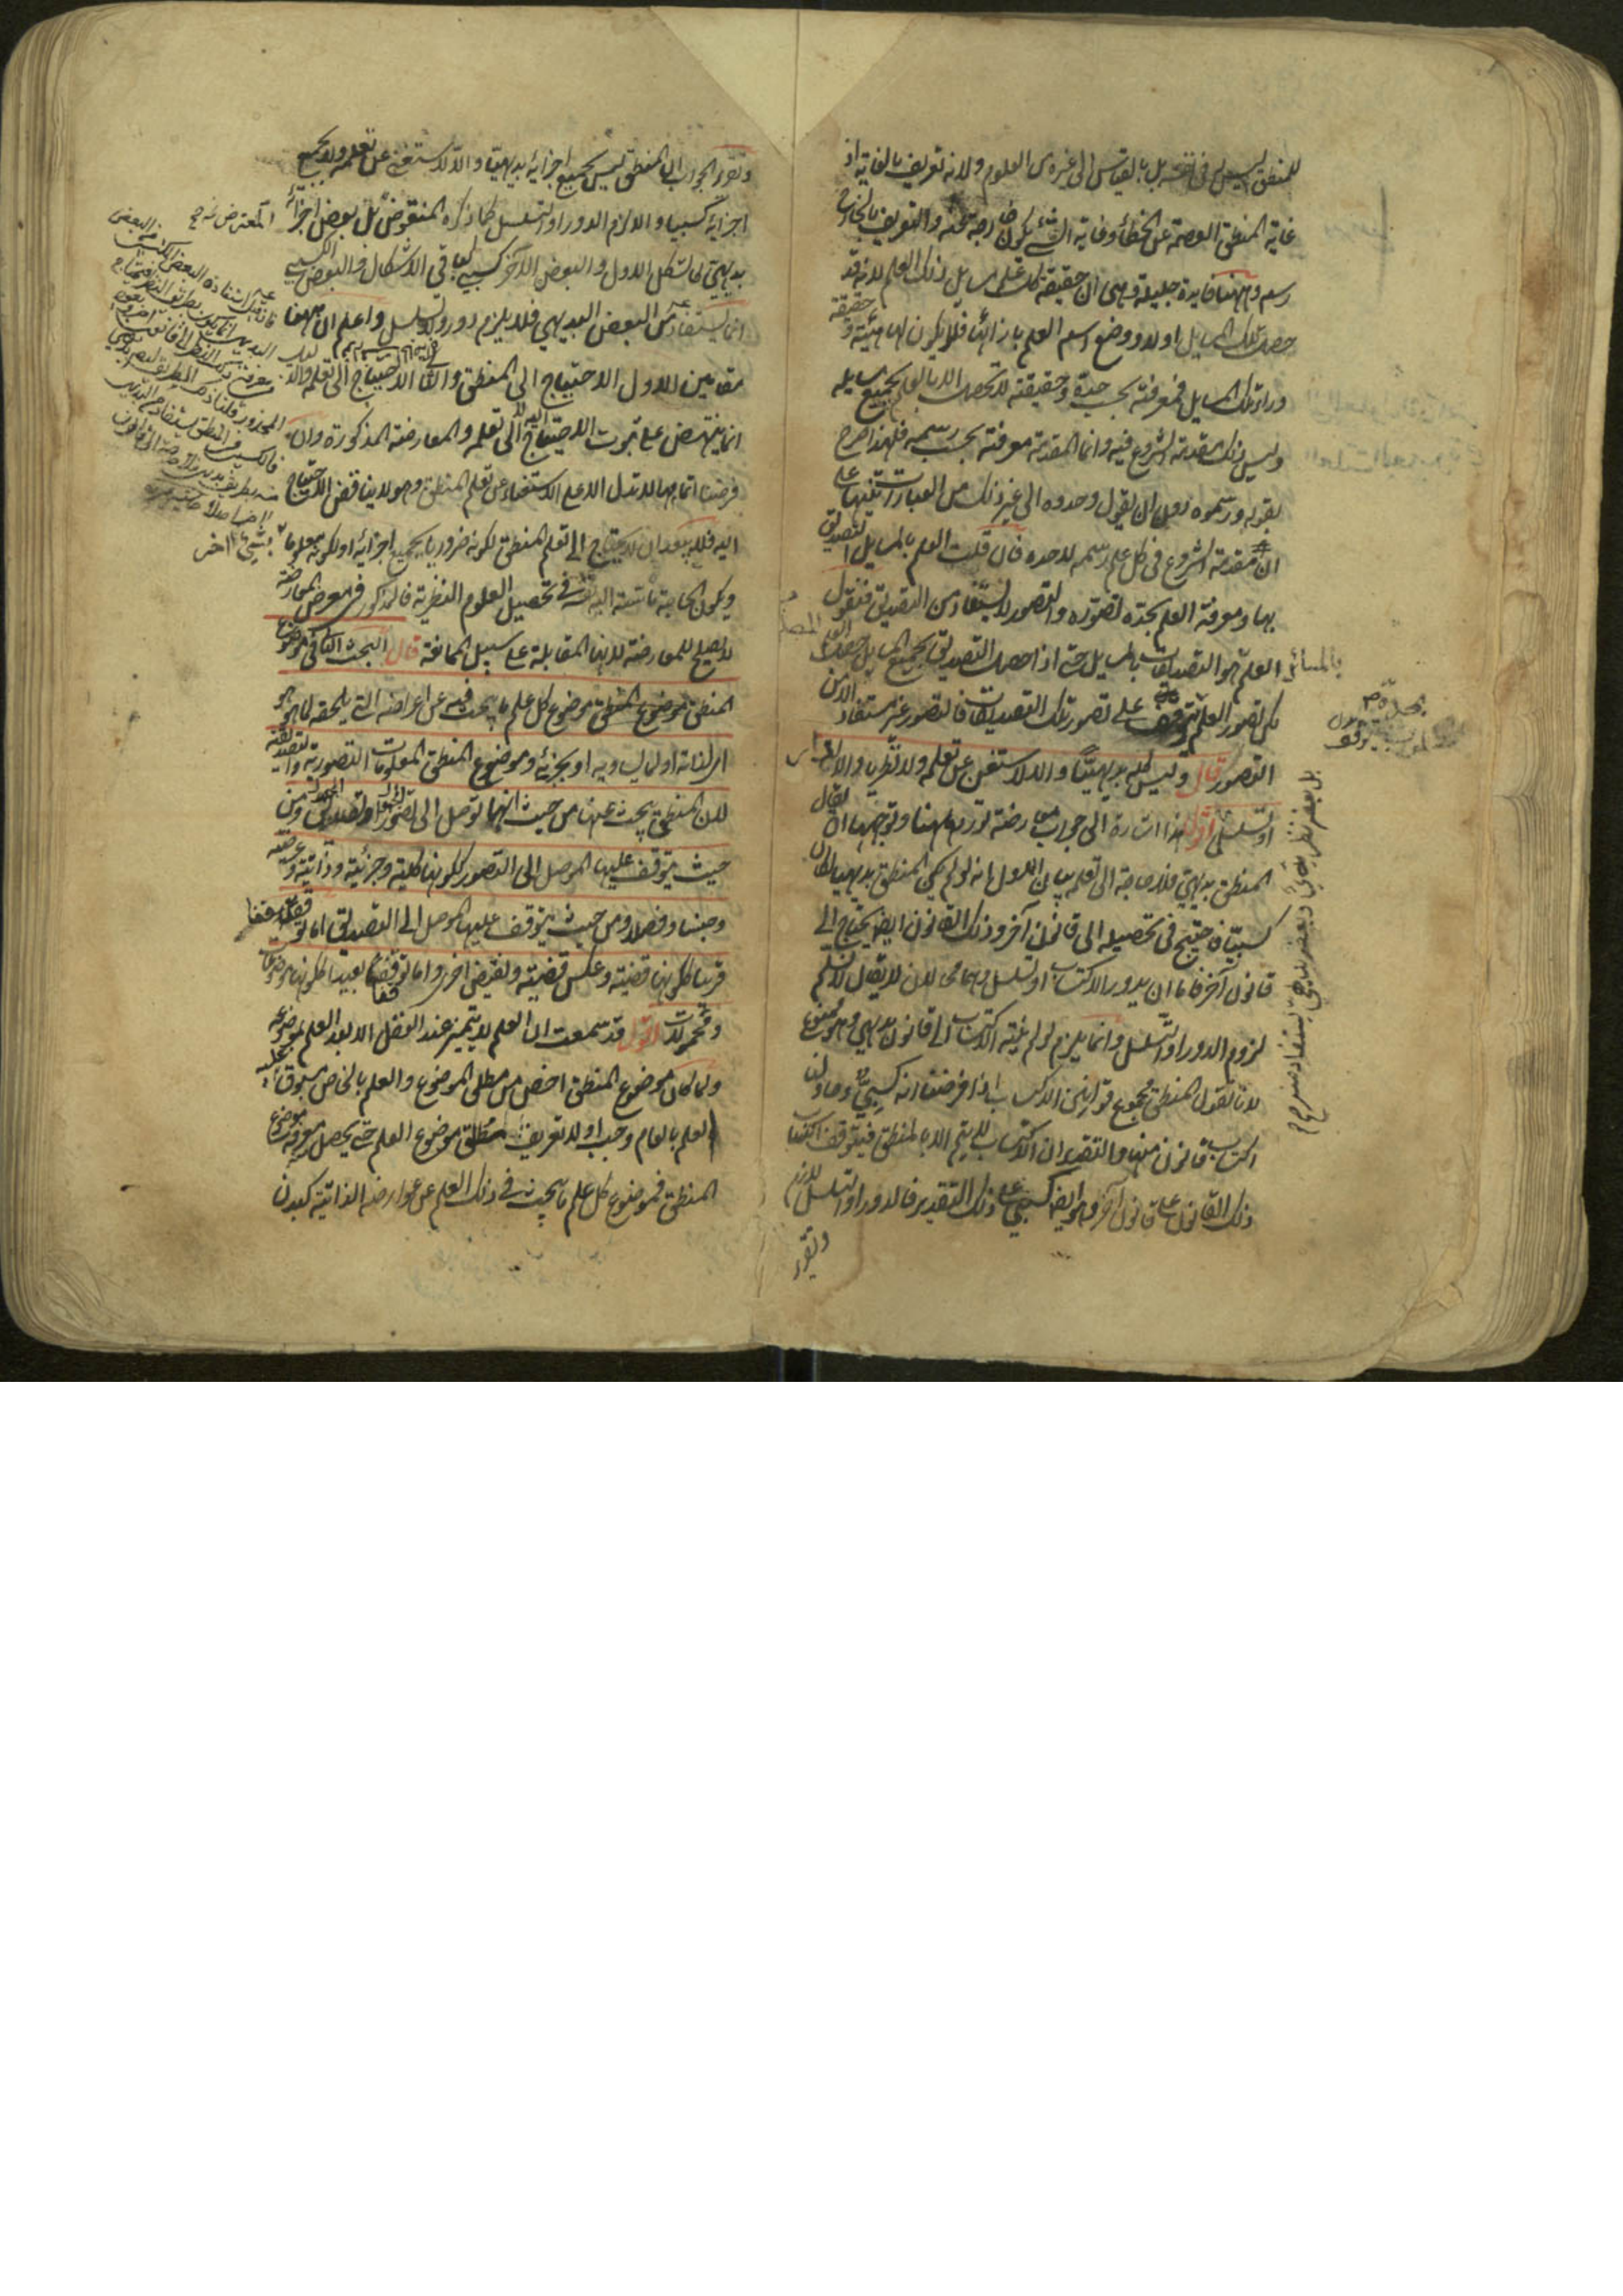 للمنطق ليس له في نفسه بل بالقياس الى غيره من العلوم ولانه تعريف بالغاية اذ
غاية المنطق العصمة عن الخطأ وغاية الشئ يكون خارجة عنه والتعريف بالخارج
رسم وههنا فايدة جليلة وهي ان حقيقة كل علم مسايل ذلك العلم لانه قد
حصلت تلك المسايل اولا ووضع اسم العلم بازائها فلا يكون لها مهية و
حقيقة
وراء تلك المسايل فمعرفته بحسب حده وحقيقته لا تحصل الا بالعلم بجميع مسايله
وليس ذلك مقدمة الشروع فيه وانما المقدمة معرفته بحسب رسمه فلهذا صرح
بقوله ورسموه دون ان يقول وحدوه الى غير ذلك من العبارات تنبيها على
ان مقدمة الشروع في كل علم رسمه لا حده فان قلت العلم بالمسايل التصديق
بها ومعرفة العلم بحده تصوره والتصور لا يستفاد من التصديق فنقول
العلم هو التصديقات بالمسايل حتى اذا حصل التصديق بجميع المسايل حصل العلم
بالمسائل
لكن تصور العلم يتوقف على تصور تلك التصديقات فالتصور غير مستفاد الا من
التصور قال وليس كله بديهيا والا لاستغني عن تعلمه ولا نظريا والا لدار
او تسلسل اقول هذا اشارة الى جواب معارضة تورد ههنا وتوجيهها ان يقال
المنطق بديهي فلا حاجة الى تعلمه بيان الاول انه لو لم يكن المنطق بديهيا لكان
كسبيا فاحتيج في تحصيله الى قانون آخر وذلك القانون ايضا يحتاج الى
قانون آخر فاما ان يدور الاكتساب او يتسلسل وهما محالان لا يقال لا نسلم
لزوم الدور او التسلسل وانما يلزم لو لم ينته الاكتساب الى قانون بديهي وهو ممنوع
لانا نقول المنطق مجموع قوانين الاكتساب فاذا فرضنا انه كسبي وحاولنا
اكتساب قانون منها والتقدير ان الاكتساب لا يتم الا بالمنطق فيتوقف اكتساب
ذلك القانون على قانون آخر وهو ايضا كسبي على ذلك التقدير فالدور او التسلسل لازم
وتقرير
بل بعضه نظري وبعضه بديهي يستفاد منه
وتقرير الجواب ان المنطق ليس بجميع اجزايه بديهيا والا لاستغني عن تعلمه ولا بجميع
اجزايه كسبيا والا لزم الدور او التسلسل كما ذكره المعترض بل بعض اجزائه
بديهي كالشكل الاول والبعض الآخر كسبي كباقي الاشكال والبعض الكسبي
انما يستفاد من البعض البديهي فلا يلزم دور ولا تسلسل واعلم ان ههنا
مقامين الاول الاحتياج الى المنطق والثاني الاحتياج الى تعلمه والدليل
انما ينتهض على ثبوت الاحتياج اليه لا الى تعلمه والمعارضة المذكورة وان
فرضنا اتمامها لا تدل الا على الاستغناء عن تعلم المنطق وهو لا يناقض الاحتياج
اليه فلا يبعد ان لا يحتاج الى تعلم المنطق لكونه ضروريا بجميع اجزائه او لكونه معلوما
بشئ آخر
ويكون الحاجة ماسة اليه في تحصيل العلوم النظرية فالمذكور في معرض المعارضة
لا يصلح للمعارضة لانها المقابلة على سبيل الممانعة قال البحث الثاني في موضوع
المنطق موضوع كل علم ما يبحث فيه عن اعراضه التي يلحقه لما هو هو
اي لذاته او لما يساويه او بجزئه وموضوع المنطق المعلومات التصورية والتصديقية
لان المنطقي يبحث عنها من حيث انها توصل الى تصور او تصديق ومن
حيث يتوقف عليها الموصل الى التصور ككونها كلية وجزئية وذاتية وعرضية
وجنسا وفصلا ومن حيث يتوقف عليها الموصل الى التصديق اما توقفا
قريبا ككونها قضية وعكس قضية ونقيض اخرى واما توقفا بعيدا ككونها موضوعات
ومحمولات اقول قد سمعت ان العلم لا يتميز عند العقل الا بعد العلم بموضوعه
ولما كان موضوع المنطق اخص من مطلق الموضوع والعلم بالخاص مسبوق
العلم بالعام وجب اولا تعريف مطلق موضوع العلم حتى يحصل معرفة موضوع
المنطق فموضوع كل علم ما يبحث في ذلك العلم عن عوارضه الذاتية كبدن